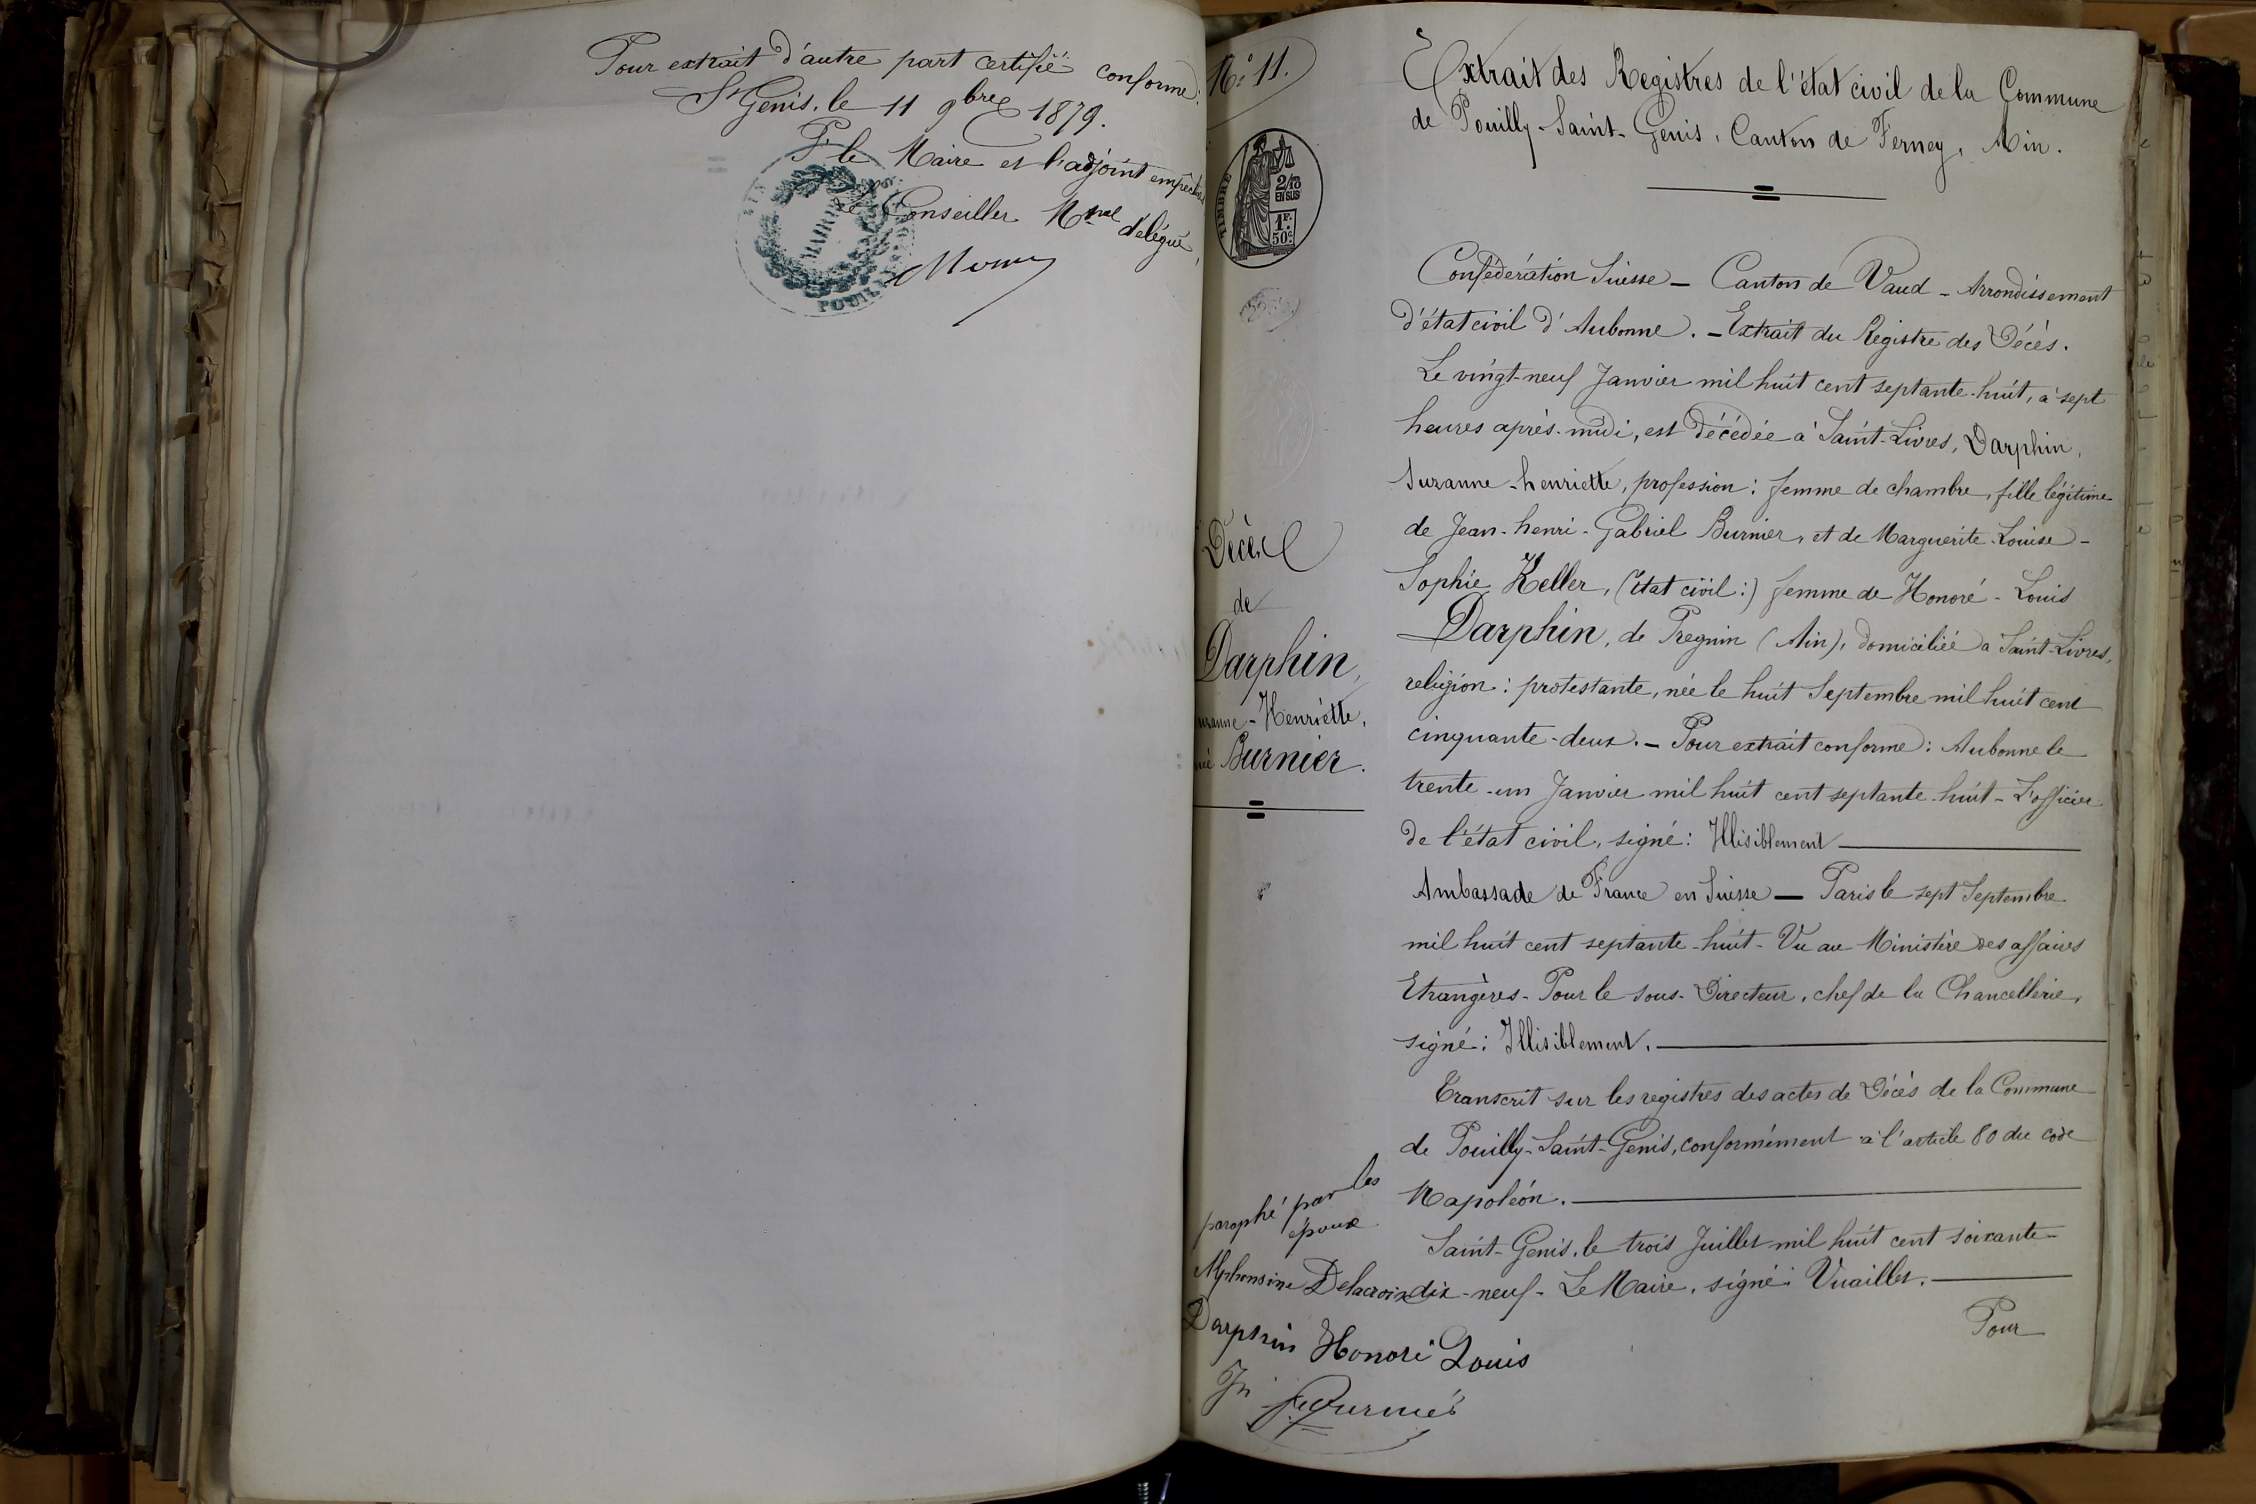 Pour extrait d'autre part certifié conforme:
St Genis, le 11 9bre 1879.
Pr le Maire et l'adjoint empêchés
Le Conseiller Mpal délégué,
MAIRIE
POUILLY
No 11.
TIMBRE
2/10
EN SUS
1F.
50c.
Extrait des Registres de l'état civil de la Commune
de Pouilly-Saint-Genis, Canton de Ferney, Ain.
Confédération Suisse - Canton de Vaud - Arrondissement
d'état civil d'Aubonne. - Extrait du Registre des Décès.
Le vingt-neuf Janvier mil huit cent septante-huit, à sept
heures après-midi, est décédée à Saint-Livres, Darphin,
Suzanne-henriette, profession: femme de chambre, fille légitime
de Jean-henri-Gabriel Burnier, et de Marguerite-Louise-
Sophie Keller, (état civil:) femme de Honoré-Louis
Darphin, de Pregnin (Ain), domiciliée à Saint-Livres,
religion: protestante, née le huit Septembre mil huit cent
cinquante-deux. - Pour extrait conforme: Aubonne le
trente-un Janvier mil huit cent septante-huit - L'officier
de l'état civil, signé: Illisiblement
Ambassade de France en Suisse - Paris le sept Septembre
mil huit cent septante-huit - Vu au Ministère des affaires
Etrangères - Pour le sous-Directeur, chef de la Chancellerie,
signé: Illisiblement.
Transcrit sur les registres des actes de Décès de la Commune
de Pouilly-Saint-Genis, conformément à l'article 80 du code
Napoléon.
Saint-Genis, le trois Juillet mil huit cent soixante-
dix-neuf - Le Maire, signé: Vuaillet.
Pour
Décès
de
Darphin,
uzanne-Henriette,
née Burnier.
paraphé par les
époux
Alphonsine Delacroix
Darphin Honoré Louis